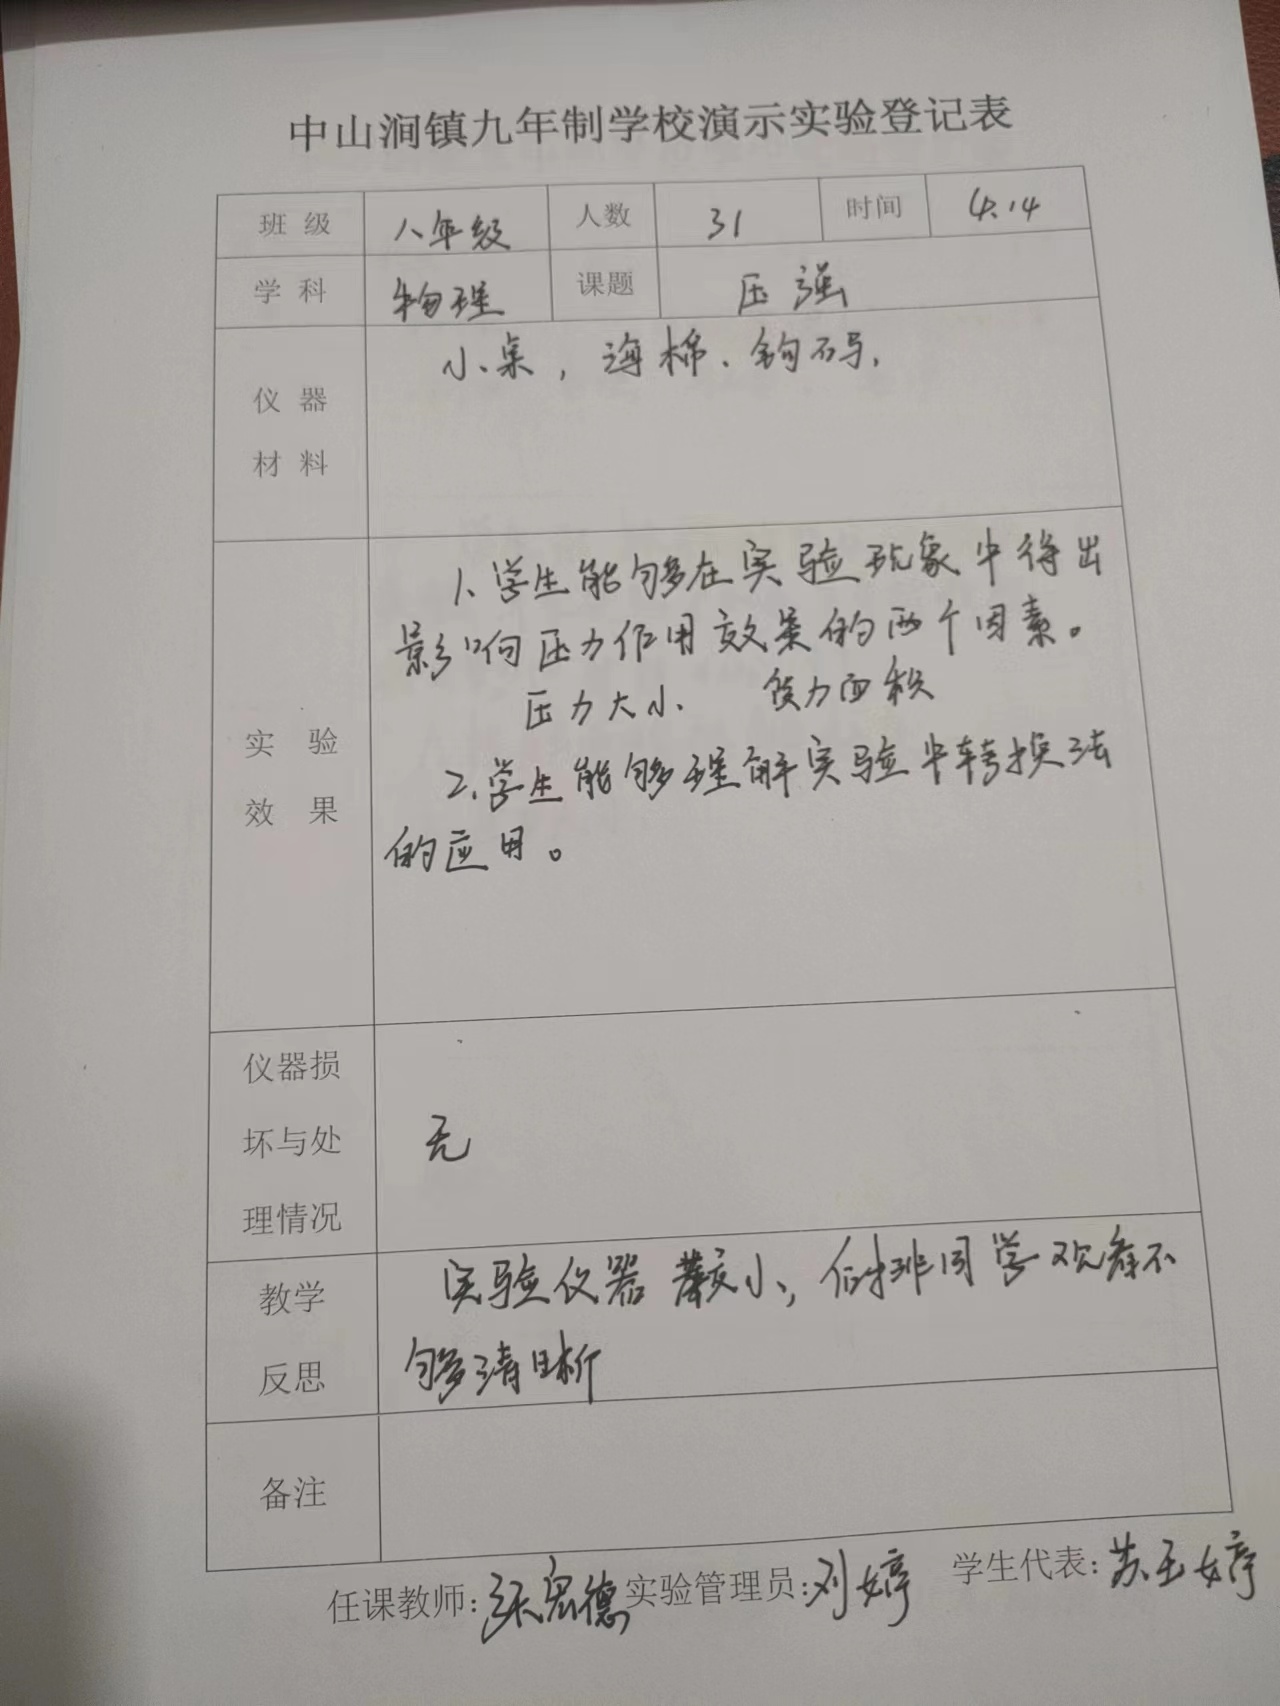 中山涧镇九年制学校演示实验登记表
班 级 八年级 人数 31 时间 4.14
学 科 物理 课题 压强
仪 器
材 料
小桌，海棉、钩码、
实 验
效 果
1、学生能够在实验现象中得出
影响压力作用效果的两个因素。
压力大小、 受力面积
2、学生能够理解实验中转换法
的应用。
仪器损
坏与处
理情况
无
教学
反思
实验仪器较小，后排同学观察不
够清晰
备注
任课教师：张宏德 实验管理员：刘婷 学生代表：苏玉婷